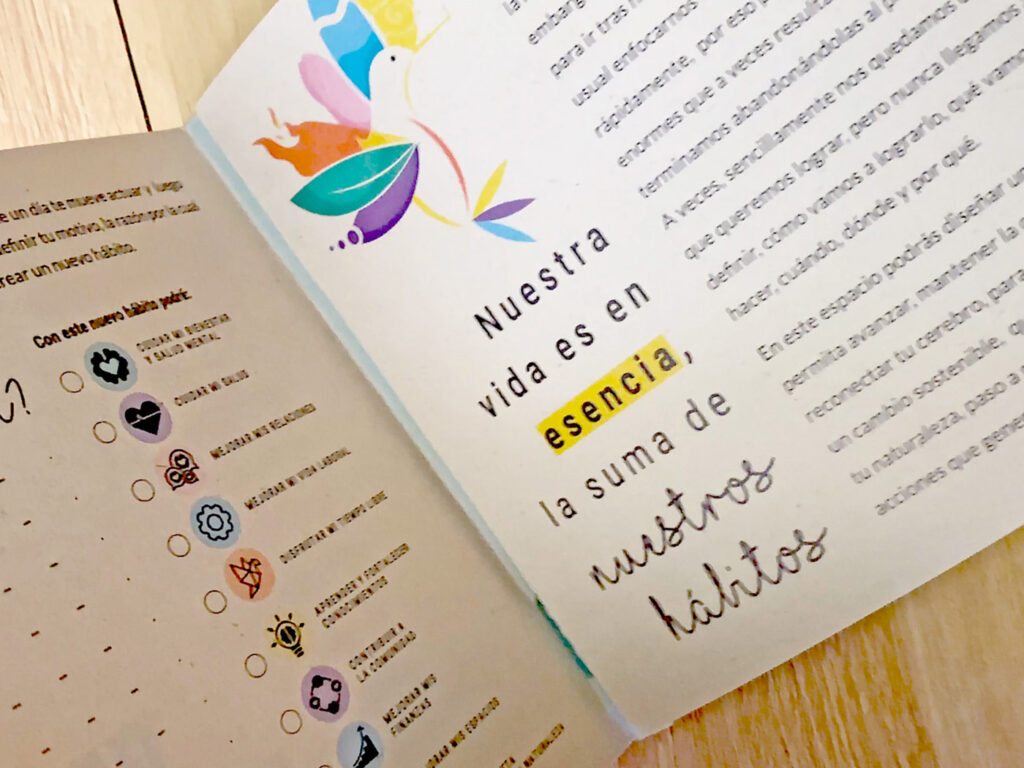 e un día te mueve actuar y luego
definir tu motivo, la razón por la cual
crear un nuevo hábito.
Con este nuevo hábito podría:
CUIDAR MI BIENESTAR
Y SALUD MENTAL
CUIDAR MI SALUD
MEJORAR MIS RELACIONES
MEJORAR MI VIDA LABORAL
DISFRUTAR MI TIEMPO LIBRE
APRENDER Y FORTALECER
CONOCIMIENTOS
CONTRIBUIR A
LA COMUNIDAD
MEJORAR MIS
FINANZAS
RAR MIS ESPACIOS
Nuestra
vida es en
esencia,
la suma de
nuestros
hábitos
embarg
para ir tras n
usual enfocarnos
rápidamente, por eso
enormes que a veces result
terminamos abandonándolas al p
A veces, sencillamente nos quedamos
que queremos lograr, pero nunca llegamos
definir, cómo vamos a lograrlo, qué vamo
hacer, cuándo, dónde y por qué.
En este espacio podrás diseñar un
permita avanzar, mantener la
reconectar tu cerebro, para
un cambio sostenible, q
tu naturaleza, paso a
acciones que gene